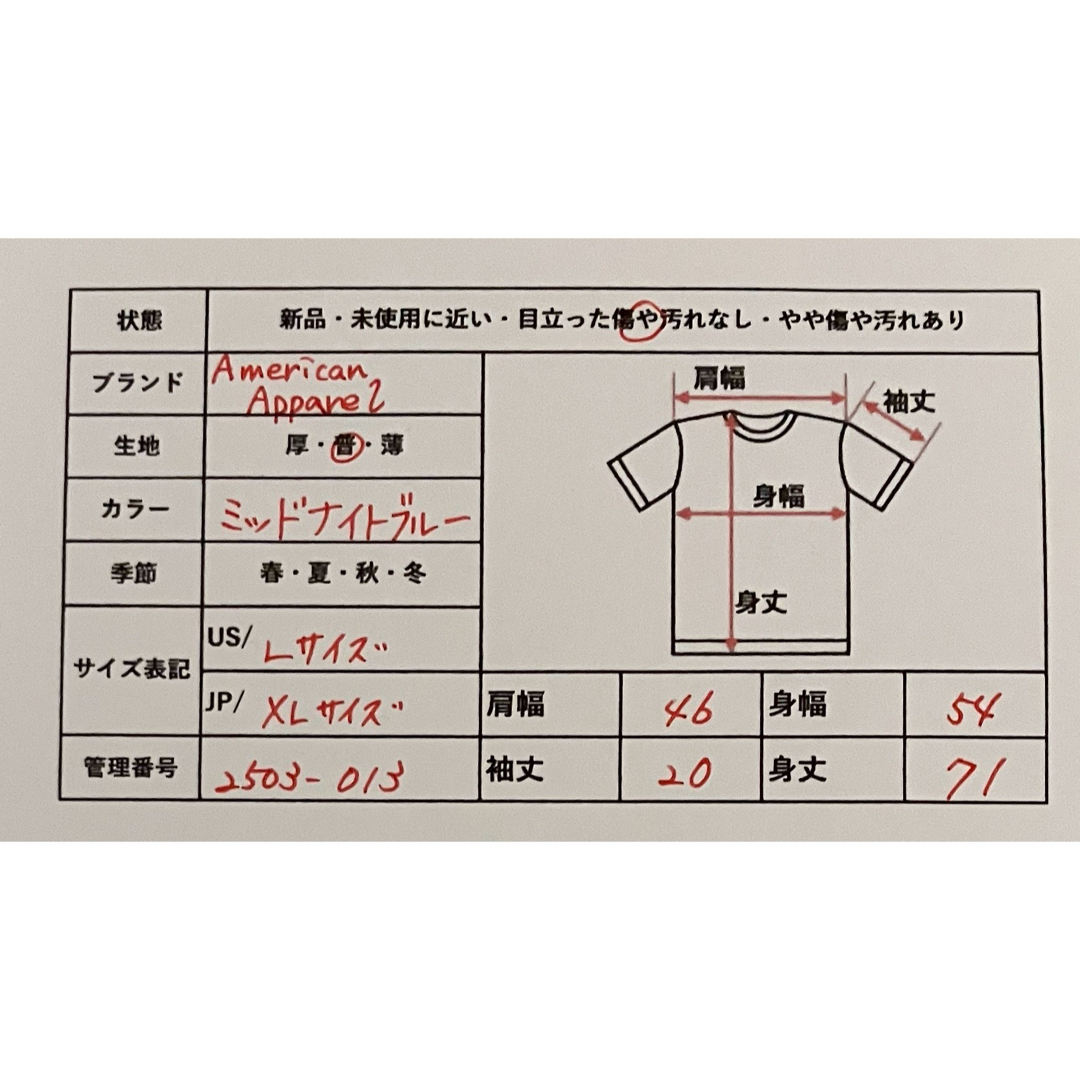 状態 新品・未使用に近い・目立った傷や汚れなし・やや傷や汚れあり
ブランド American
Apparel
生地 厚・普・薄
カラー ミッドナイトブルー
季節 春・夏・秋・冬
サイズ表記
US/ Lサイズ
JP/ XLサイズ
管理番号 2503-013
肩幅
袖丈
身幅
身丈
肩幅 46 身幅 54
袖丈 20 身丈 71